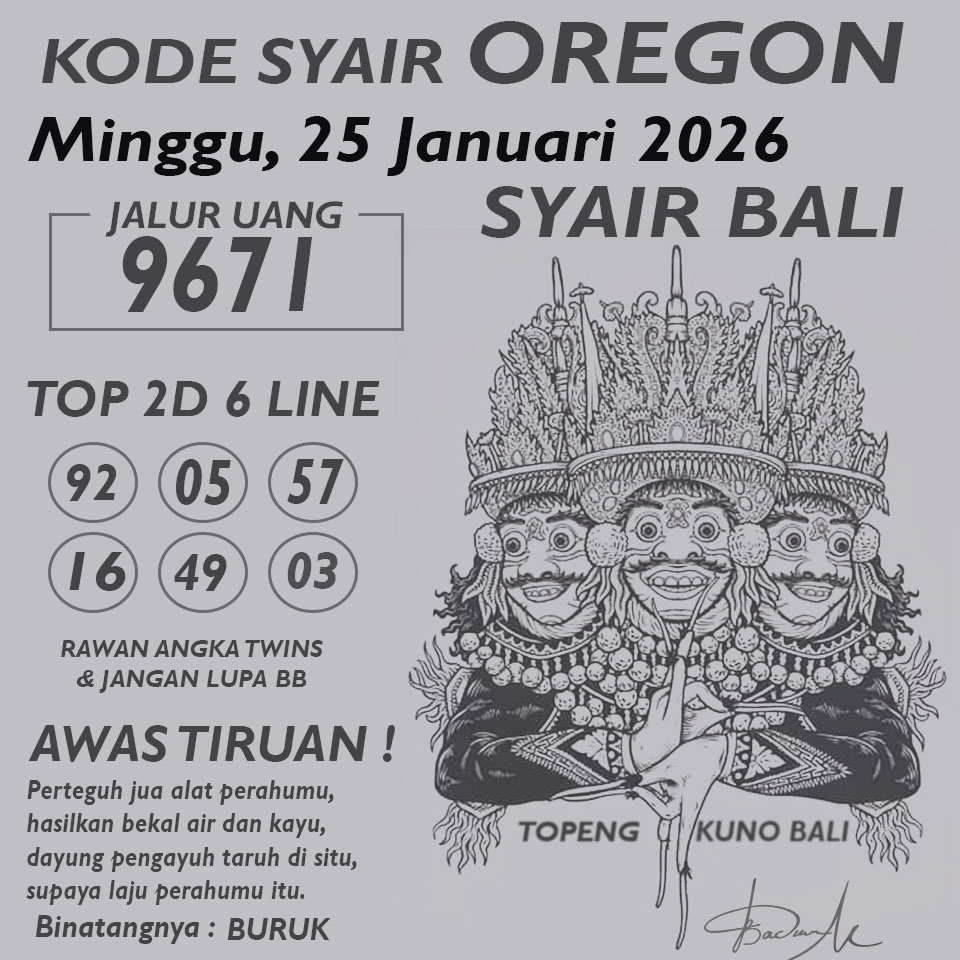 KODE SYAIR OREGON
Minggu, 25 Januari 2026
SYAIR BALI
JALUR UANG
9671
TOP 2D 6 LINE
92 05 57
16 49 03
RAWAN ANGKA TWINS
& JANGAN LUPA BB
AWAS TIRUAN !
Perteguh jua alat perahumu,
hasilkan bekal air dan kayu,
dayung pengayuh taruh di situ,
supaya laju perahumu itu.
Binatangnya : BURUK
TOPENG KUNO BALI